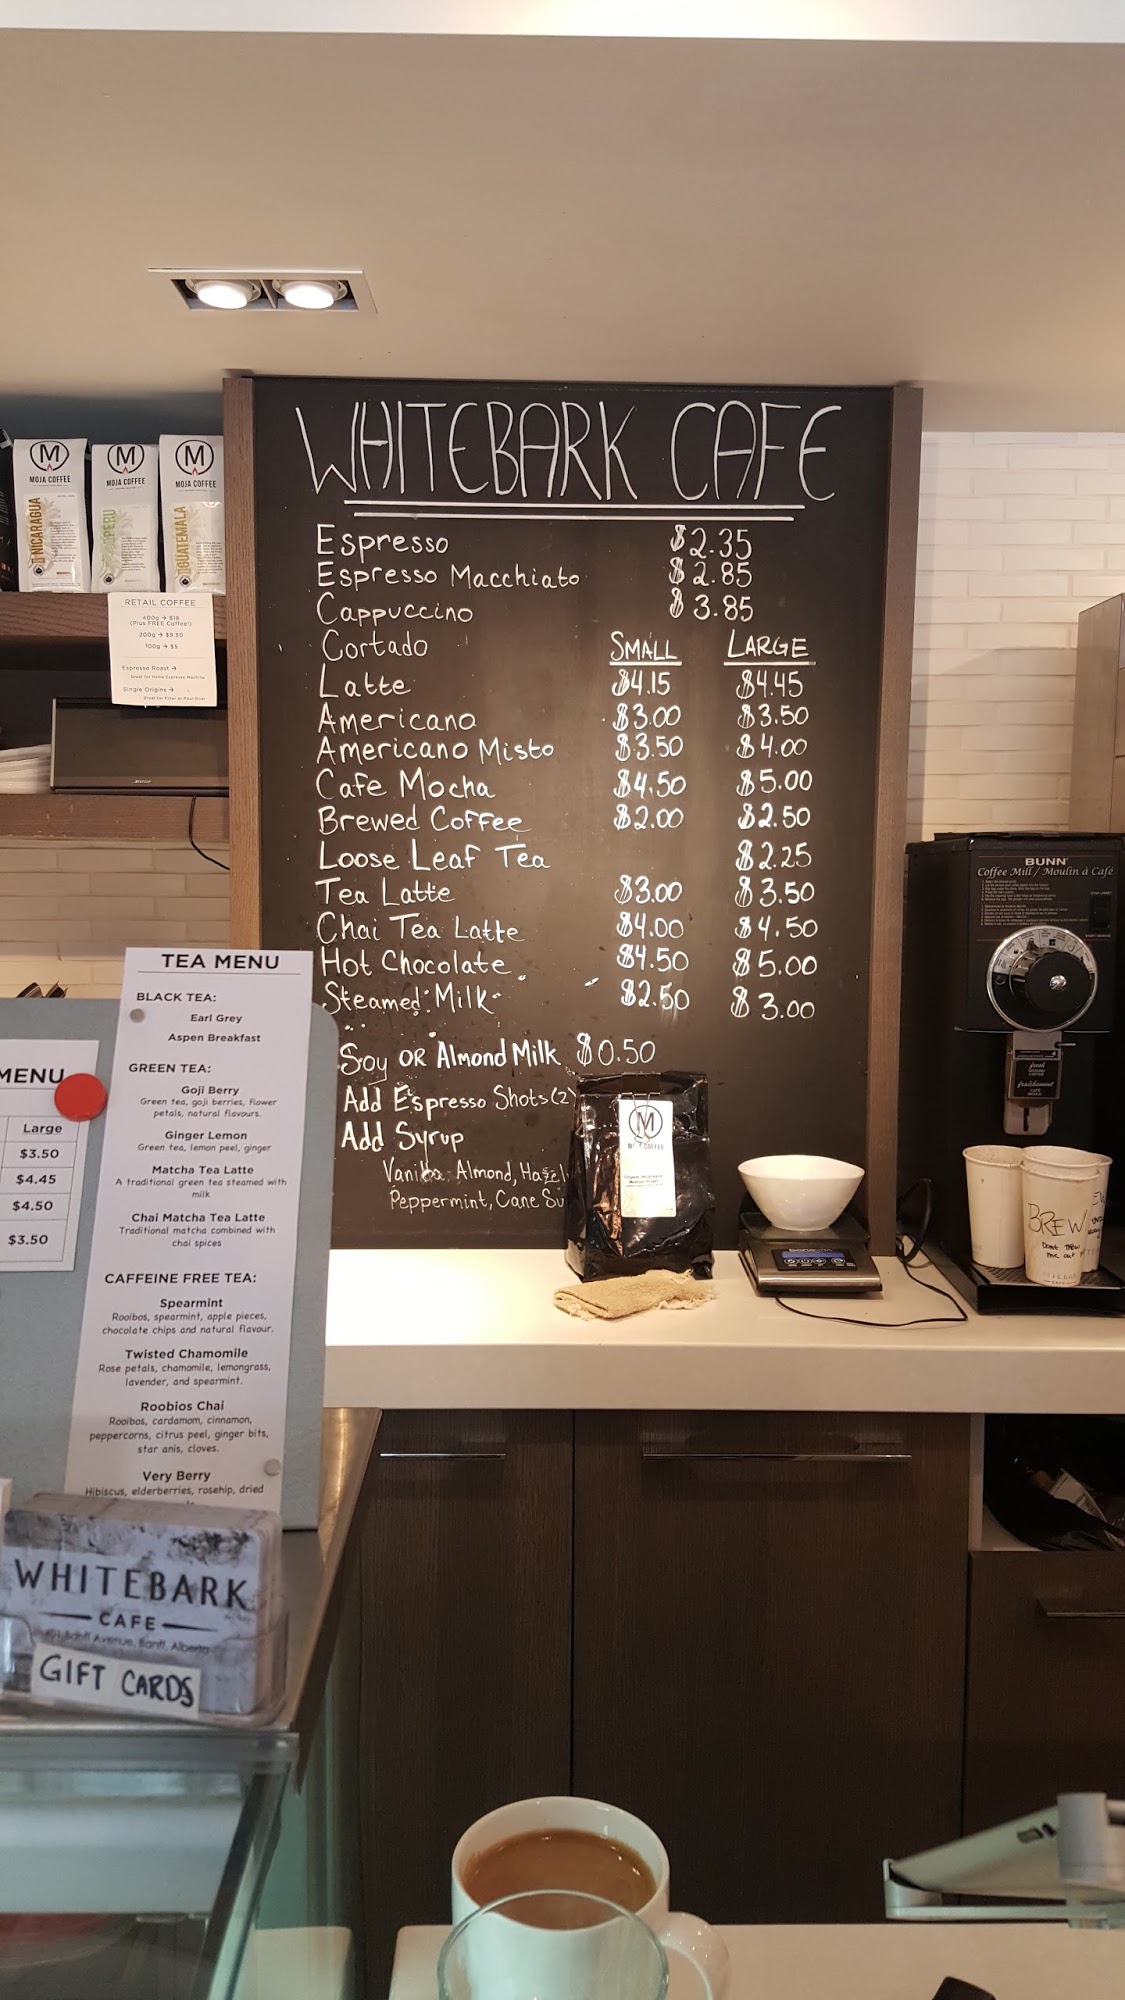 WHITEBARK CAFE
Espresso $2.35
Espresso Macchiato $2.85
Cappuccino $3.85
Cortado SMALL LARGE
Latte $4.15 $4.45
Americano $3.00 $3.50
Americano Misto $3.50 $4.00
Cafe Mocha $4.50 $5.00
Brewed Coffee $2.00 $2.50
Loose Leaf Tea $2.25
Tea Latte $3.00 $3.50
Chai Tea Latte $4.00 $4.50
Hot Chocolate $4.50 $5.00
Steamed Milk $2.50 $3.00
Soy OR Almond Milk $0.50
Add Espresso Shots (2)
Add Syrup
Vanilla, Almond,
Peppermint, Cane
M
MOJA COFFEE
NICARAGUA
M
MOJA COFFEE
PERU
M
MOJA COFFEE
GUATEMALA
RETAIL COFFEE
400g → $18
(Plus FREE Coffee!)
200g → $9.50
100g → $5
Espresso Roast →
Great for Home Espresso Machine
Single Origins →
Great for Filter or Pour Over
BOSE
TEA MENU
BLACK TEA:
Earl Grey
Aspen Breakfast
GREEN TEA:
Goji Berry
Green tea, goji berries, flower
petals, natural flavours.
Ginger Lemon
Green tea, lemon peel, ginger
Matcha Tea Latte
A traditional green tea steamed with
milk
Chai Matcha Tea Latte
Traditional matcha combined with
chai spices
CAFFEINE FREE TEA:
Spearmint
Rooibos, spearmint, apple pieces,
chocolate chips and natural flavour.
Twisted Chamomile
Rose petals, chamomile, lemongrass,
lavender, and spearmint.
Roobios Chai
Rooibos, cardamom, cinnamon,
peppercorns, citrus peel, ginger bits,
star anis, cloves.
Very Berry
Hibiscus, elderberries, rosehip, dried
MENU
Large
$3.50
$4.45
$4.50
$3.50
WHITEBARK
CAFE
Banff Avenue, Banff, Alberta
GIFT CARDS
M
MOJA COFFEE
Organic Nicaragua
Medium Roast
BUNN
Coffee Mill / Moulin à Café
fresh
GROUND
COFFEE
fraîchement
CAFÉ
MOULU
BREW
DONT THROW
ME OUT